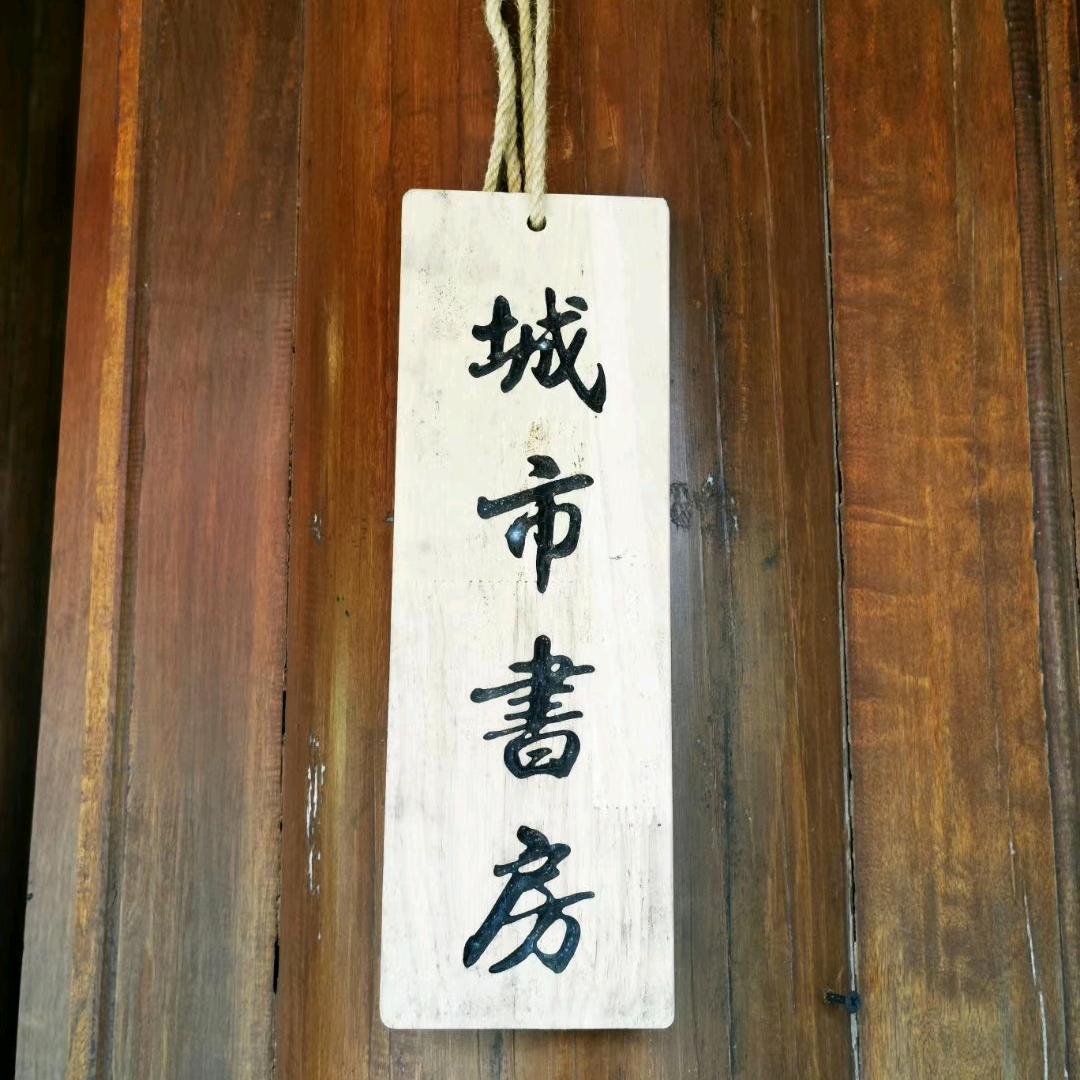 城市書房